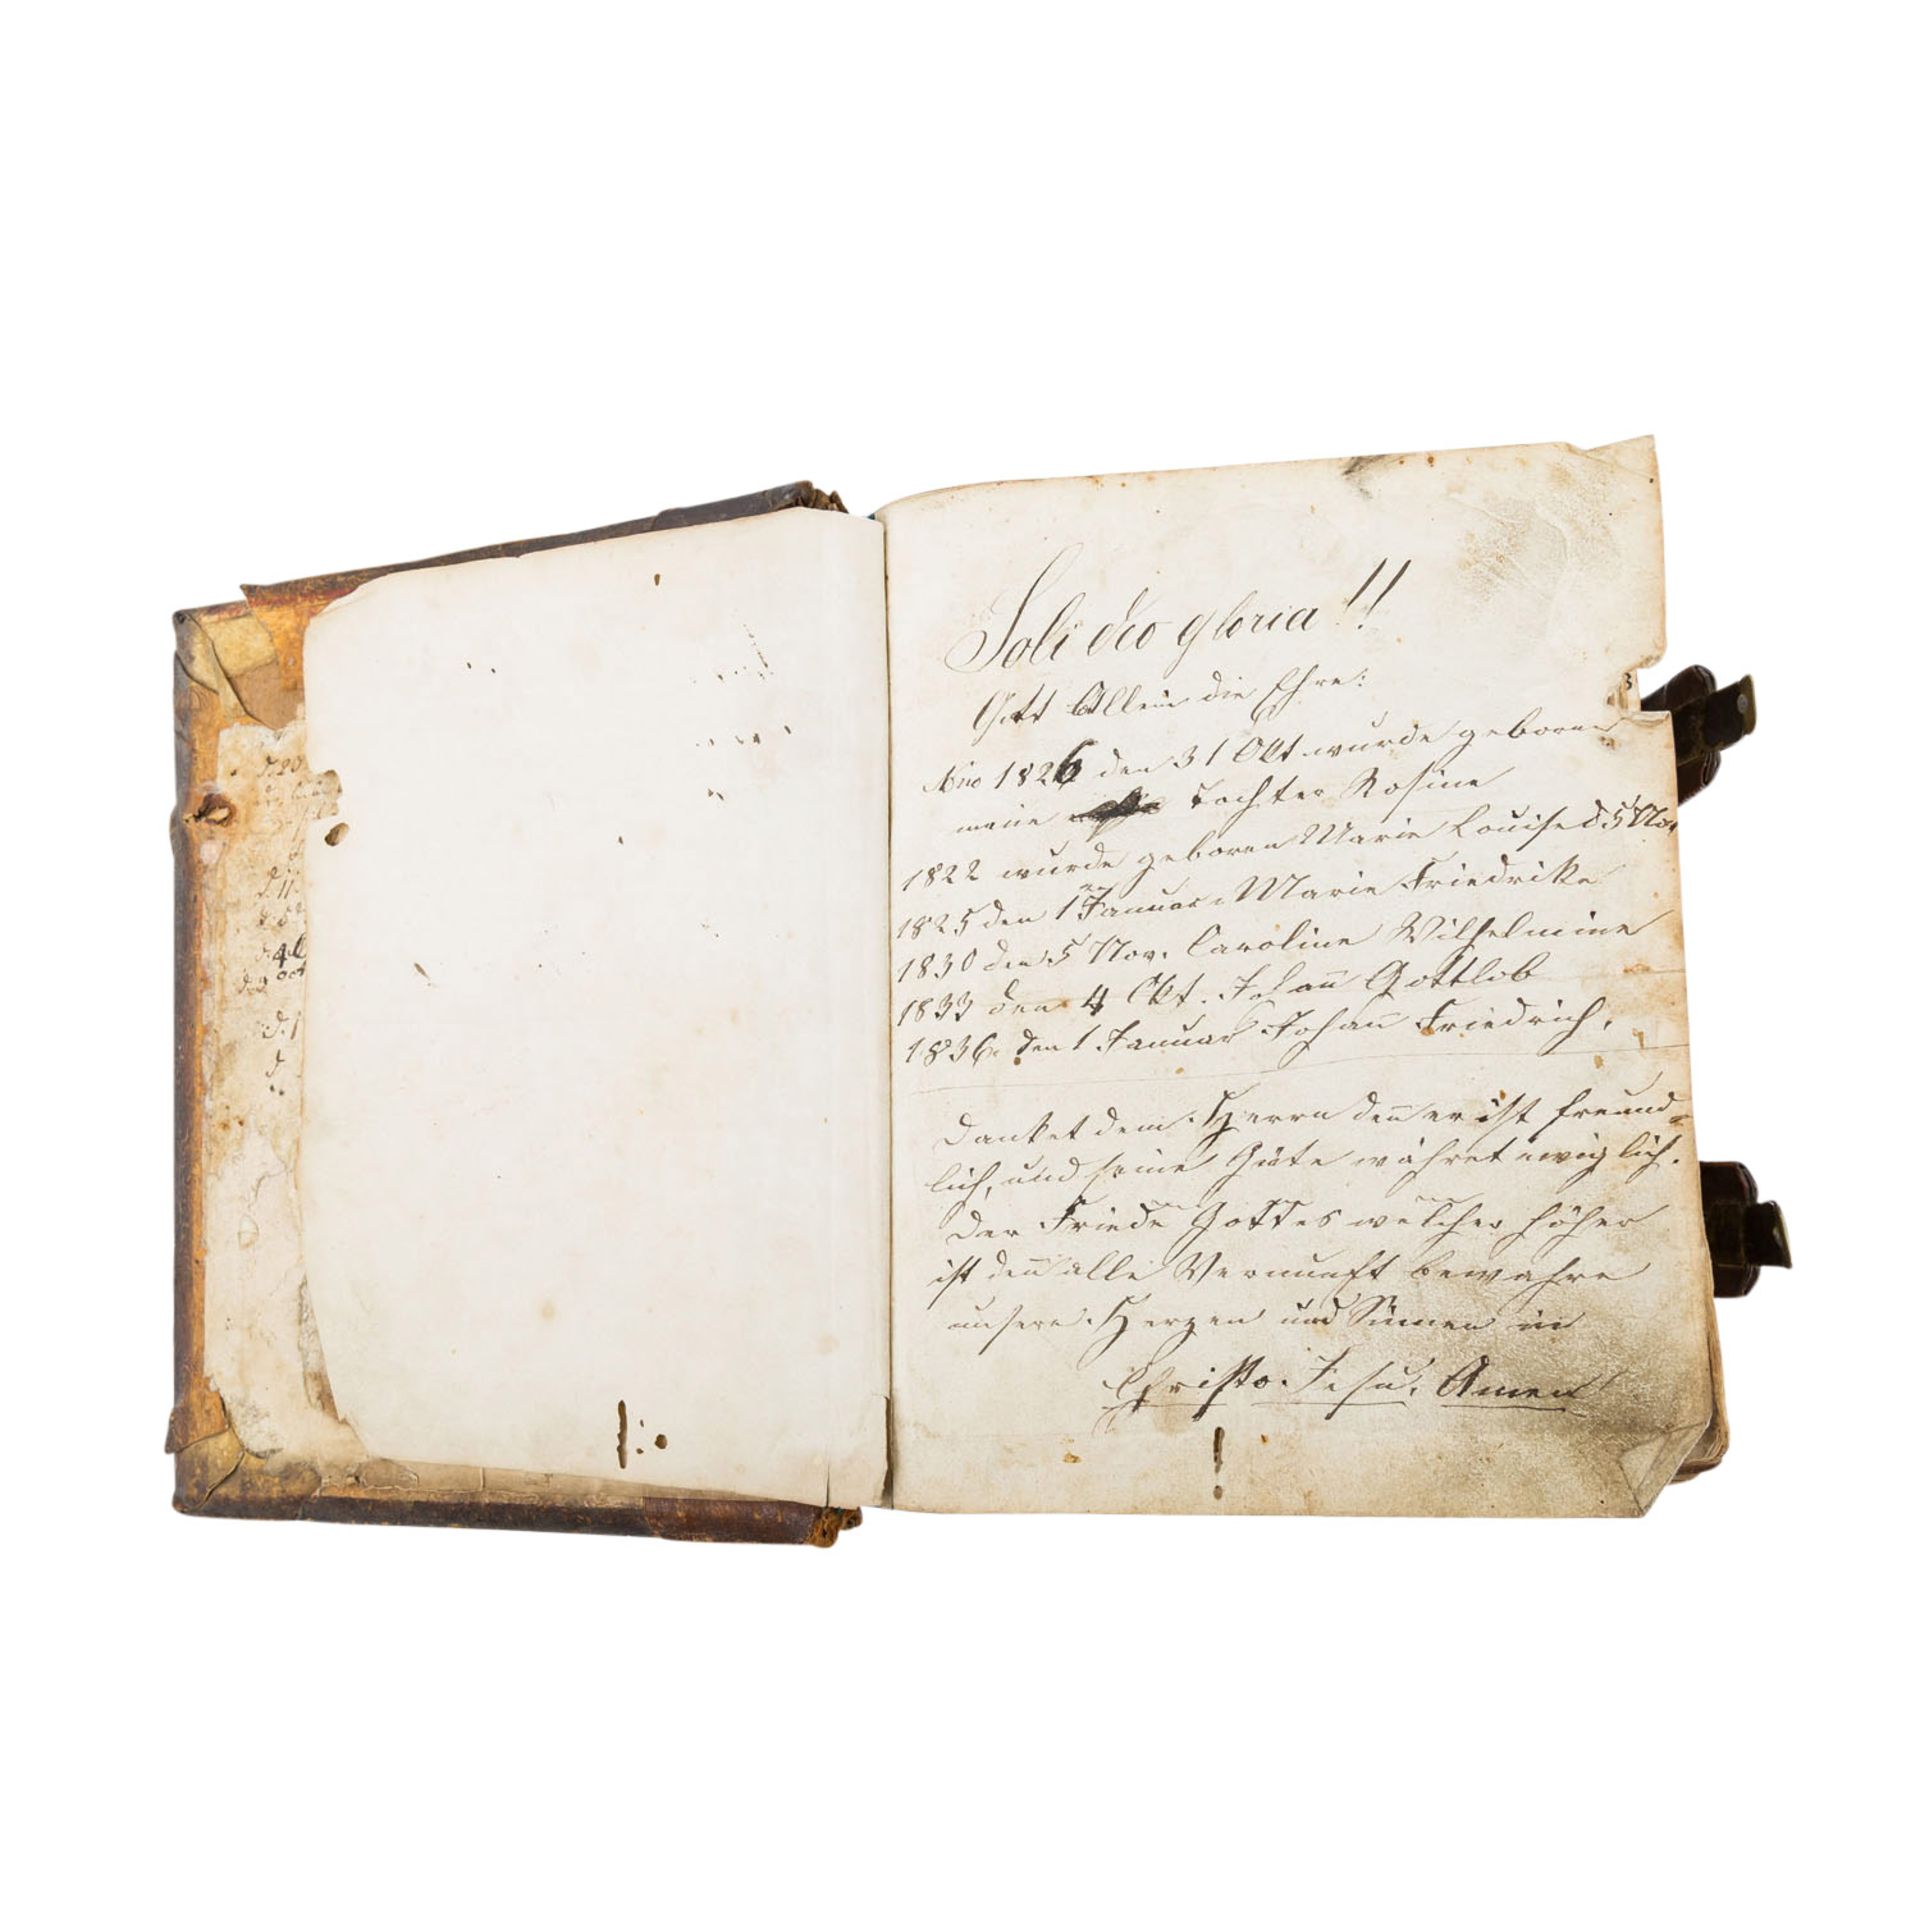 d. 20
d. 11.
d. 5
d. 4
d. 9 oct
d. 1
d
Soli deo gloria!!
Gott Allein die Ehre:
Ano 1826 den 31 Okt wurde geboren
meine Tochter Rosine
1822 wurde geboren Marie Louise d 5 Nov
1825 den 1 Januar Marie Friedrike
1830 den 5 Nov. Caroline Wilhelmine
1833 den 4 Okt. Johan̄ Gottlob
1836. den 1 Januar Johan̄ Friedrich.
Danket dem Herrn den̄ er ist freund-
lich, und seine Güte währet ewiglich.
Der Friede Gottes welcher höher
ist den̄ alle Vernunft bewahre
unsere Herzen und Sinnen in
Christo Jesu, Amen